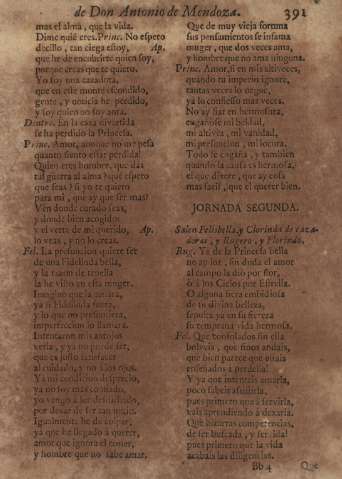 de Don Antonio de Mendoza. 391
mas el alma, que la vida.
Dime quié eres. Princ. No espero
decillo, tan ciega estoy, Ap.
que he de encubrirte quien soy,
porque creas que te quiero.
Yo soy una cazadora,
que en este monte escondido,
gente, y noticia he perdido,
y soy quien no soy aora.
Dentro. En la caza divertida
se ha perdido la Princesa.
Princ. Amor, aunque no me pesa
quanto siento estar perdida!
Quien eres hombre, que das
tal guerra al alma? qué espero
que seas? si yo te quiero
para mi, que ay que ser mas?
Vén donde curado seas,
y donde bien acogido
y el verte de mi querido, Ap.
lo veas, y no lo creas.
Fel. La presuncion quiere ser
de una Fidelinda bella,
y la razon de
la he visto en esta muger.
Imagino que la
ya si Fidelinda fuera,
y lo que no presumiera,
imperfeccion lo llamara.
Intentaron mis antojos
verla, y ya no puede ser,
que es justo satisfacer
al cuidado, y no à los ojos.
Ya mi condicion desprecio,
ya no soy mas confiado,
yo vengo à ser desdichado,
por dexar de ser tan necio.
Igualmente he de culpar,
ya que he llegado à querer,
amor que ignora el temer,
y hombre que no sabe amar.
Que de muy vieja fortuna
sus pensamientos se infama
muger, que dos veces ama,
y hombre que no ama ninguna.
Princ. Amor, si en mis altiveces,
quando tu imperio ignore,
tantas veces lo negue,
ya lo confiesso mas veces.
No ay fiar en hermosura,
engañóse mi beldad,
mi altivez, mi vanidad,
mi presuncion, mi locura.
Todo se engaña, y tambien
quando la causa es hermosa,
el que difiere, que ay cosa
mas facil, que el querer bien.
JORNADA SEGUNDA.
Salen Felisbella, y Clorinda de caza-
doras, y Rugero, y Florindo.
Rug. Ya de la Princesa bella
no ay flor, sin duda el amor
al campo la dió por flor,
ò à los Cielos por Estrella.
O alguna fiera embidiosa
de tu divina belleza,
sepulta ya en su fiereza
su temprana vida hermosa.
Fel. Que consolados sin ella
bolveis, que finos andais,
que bien parece que estais
enseñados à perdella!
Y ya que intenteis amarla,
poco sabeis assistirla,
pues primero que à servirla,
vais aprendiendo à dexarla.
Que bizarras competencias,
de ser buscada, y ser hallada!
pues primero que la vida
acabais las diligencias.
Bb 4 Que